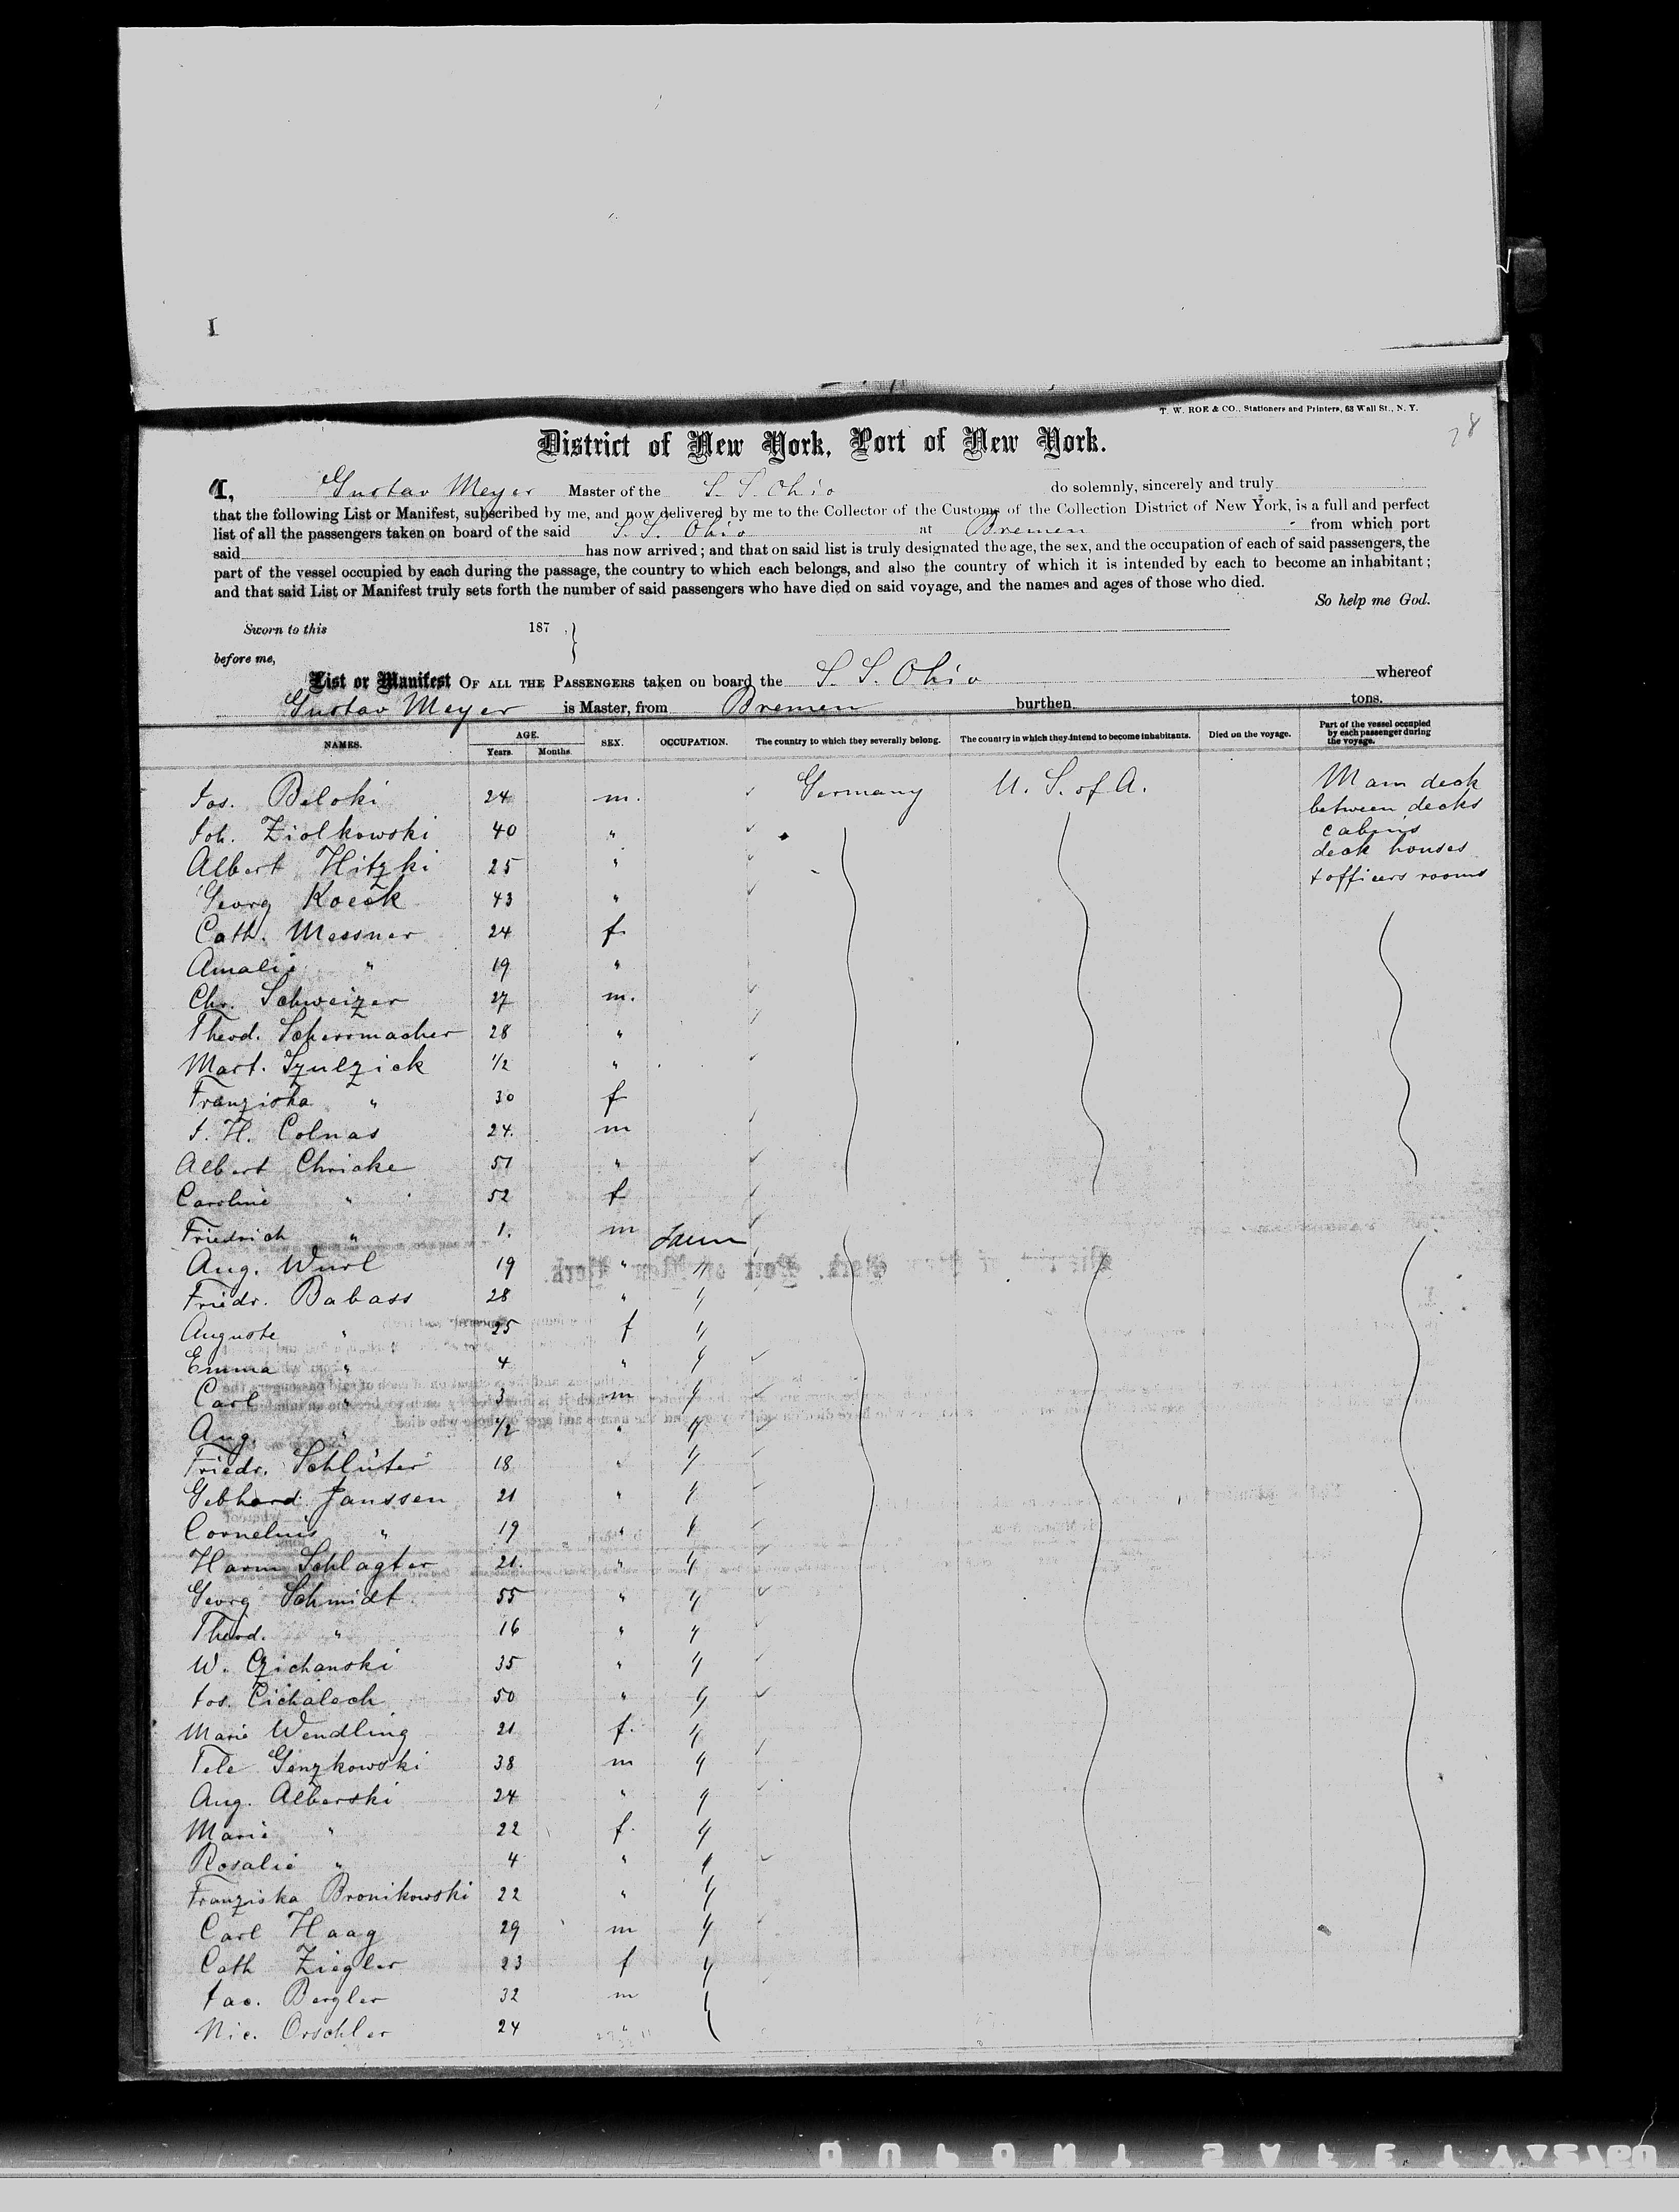 I
T. W. ROE & CO., Stationers and Printers, 63 Wall St., N. Y.
78
District of New York, Port of New York.
I, Gustav Meyer Master of the S. S. Ohio do solemnly, sincerely and truly
that the following List or Manifest, subscribed by me, and now delivered by me to the Collector of the Customs of the Collection District of New York, is a full and perfect
list of all the passengers taken on board of the said S. S. Ohio at Bremen from which port
said has now arrived; and that on said list is truly designated the age, the sex, and the occupation of each of said passengers, the
part of the vessel occupied by each during the passage, the country to which each belongs, and also the country of which it is intended by each to become an inhabitant;
and that said List or Manifest truly sets forth the number of said passengers who have died on said voyage, and the names and ages of those who died.
So help me God.
Sworn to this 187 }
before me,
List or Manifest OF ALL THE PASSENGERS taken on board the S. S. Ohio whereof
Gustav Meyer is Master, from Bremen burthen tons.
NAMES. AGE. Years. Months. SEX. OCCUPATION. The country to which they severally belong. The country in which they intend to become inhabitants. Died on the voyage. Part of the vessel occupied by each passenger during the voyage.
Jos. Beloki 24 m. Germany U. S. of A. Main deck
between decks
Joh. Ziolkowski 40 " cabins
deck houses
Albert Hitzki 25 " + officers rooms
Georg Koeck 43 "
Cath. Messner 24 f
Amalie " 19 "
Chr. Schweizer 27 m.
Theod. Schermacher 28 "
Mart. Szulzick 1/2 "
Franziska " 30 f
J. H. Colnas 24. m
Albert Chricke 51 "
Caroline " 52 f
Friedrich " 1. m
Aug. Wurl 19 " "
Friedr. Babass 28 " "
Auguste " 25 f "
Emma " 4 " "
Carl " 3 m "
Aug. " 1/2 " "
Friedr. Schlüter 18 " "
Gebhard Janssen 21 " "
Cornelius " 19 " "
Harm Schlagter 21. " "
Georg Schmidt 55 " "
Theod. " 16 " "
W. Czichanski 35 " "
Jos. Cichalech 50 " "
Marie Wendling 21 f. "
Tele Genzkowski 38 m "
Aug. Alberski 24 " "
Marie " 22 f. "
Rosalie " 4 " "
Franziska Bronikowski 22 " "
Carl Haag 29 m "
Cath Ziegler 23 f "
Jac. Bergler 32 m
Nic. Orschler 24 "